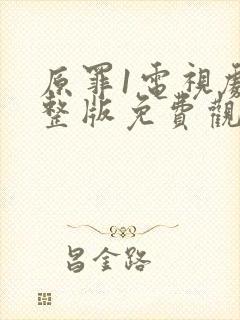 原罪1電視劇
整版免費觀
昌金路